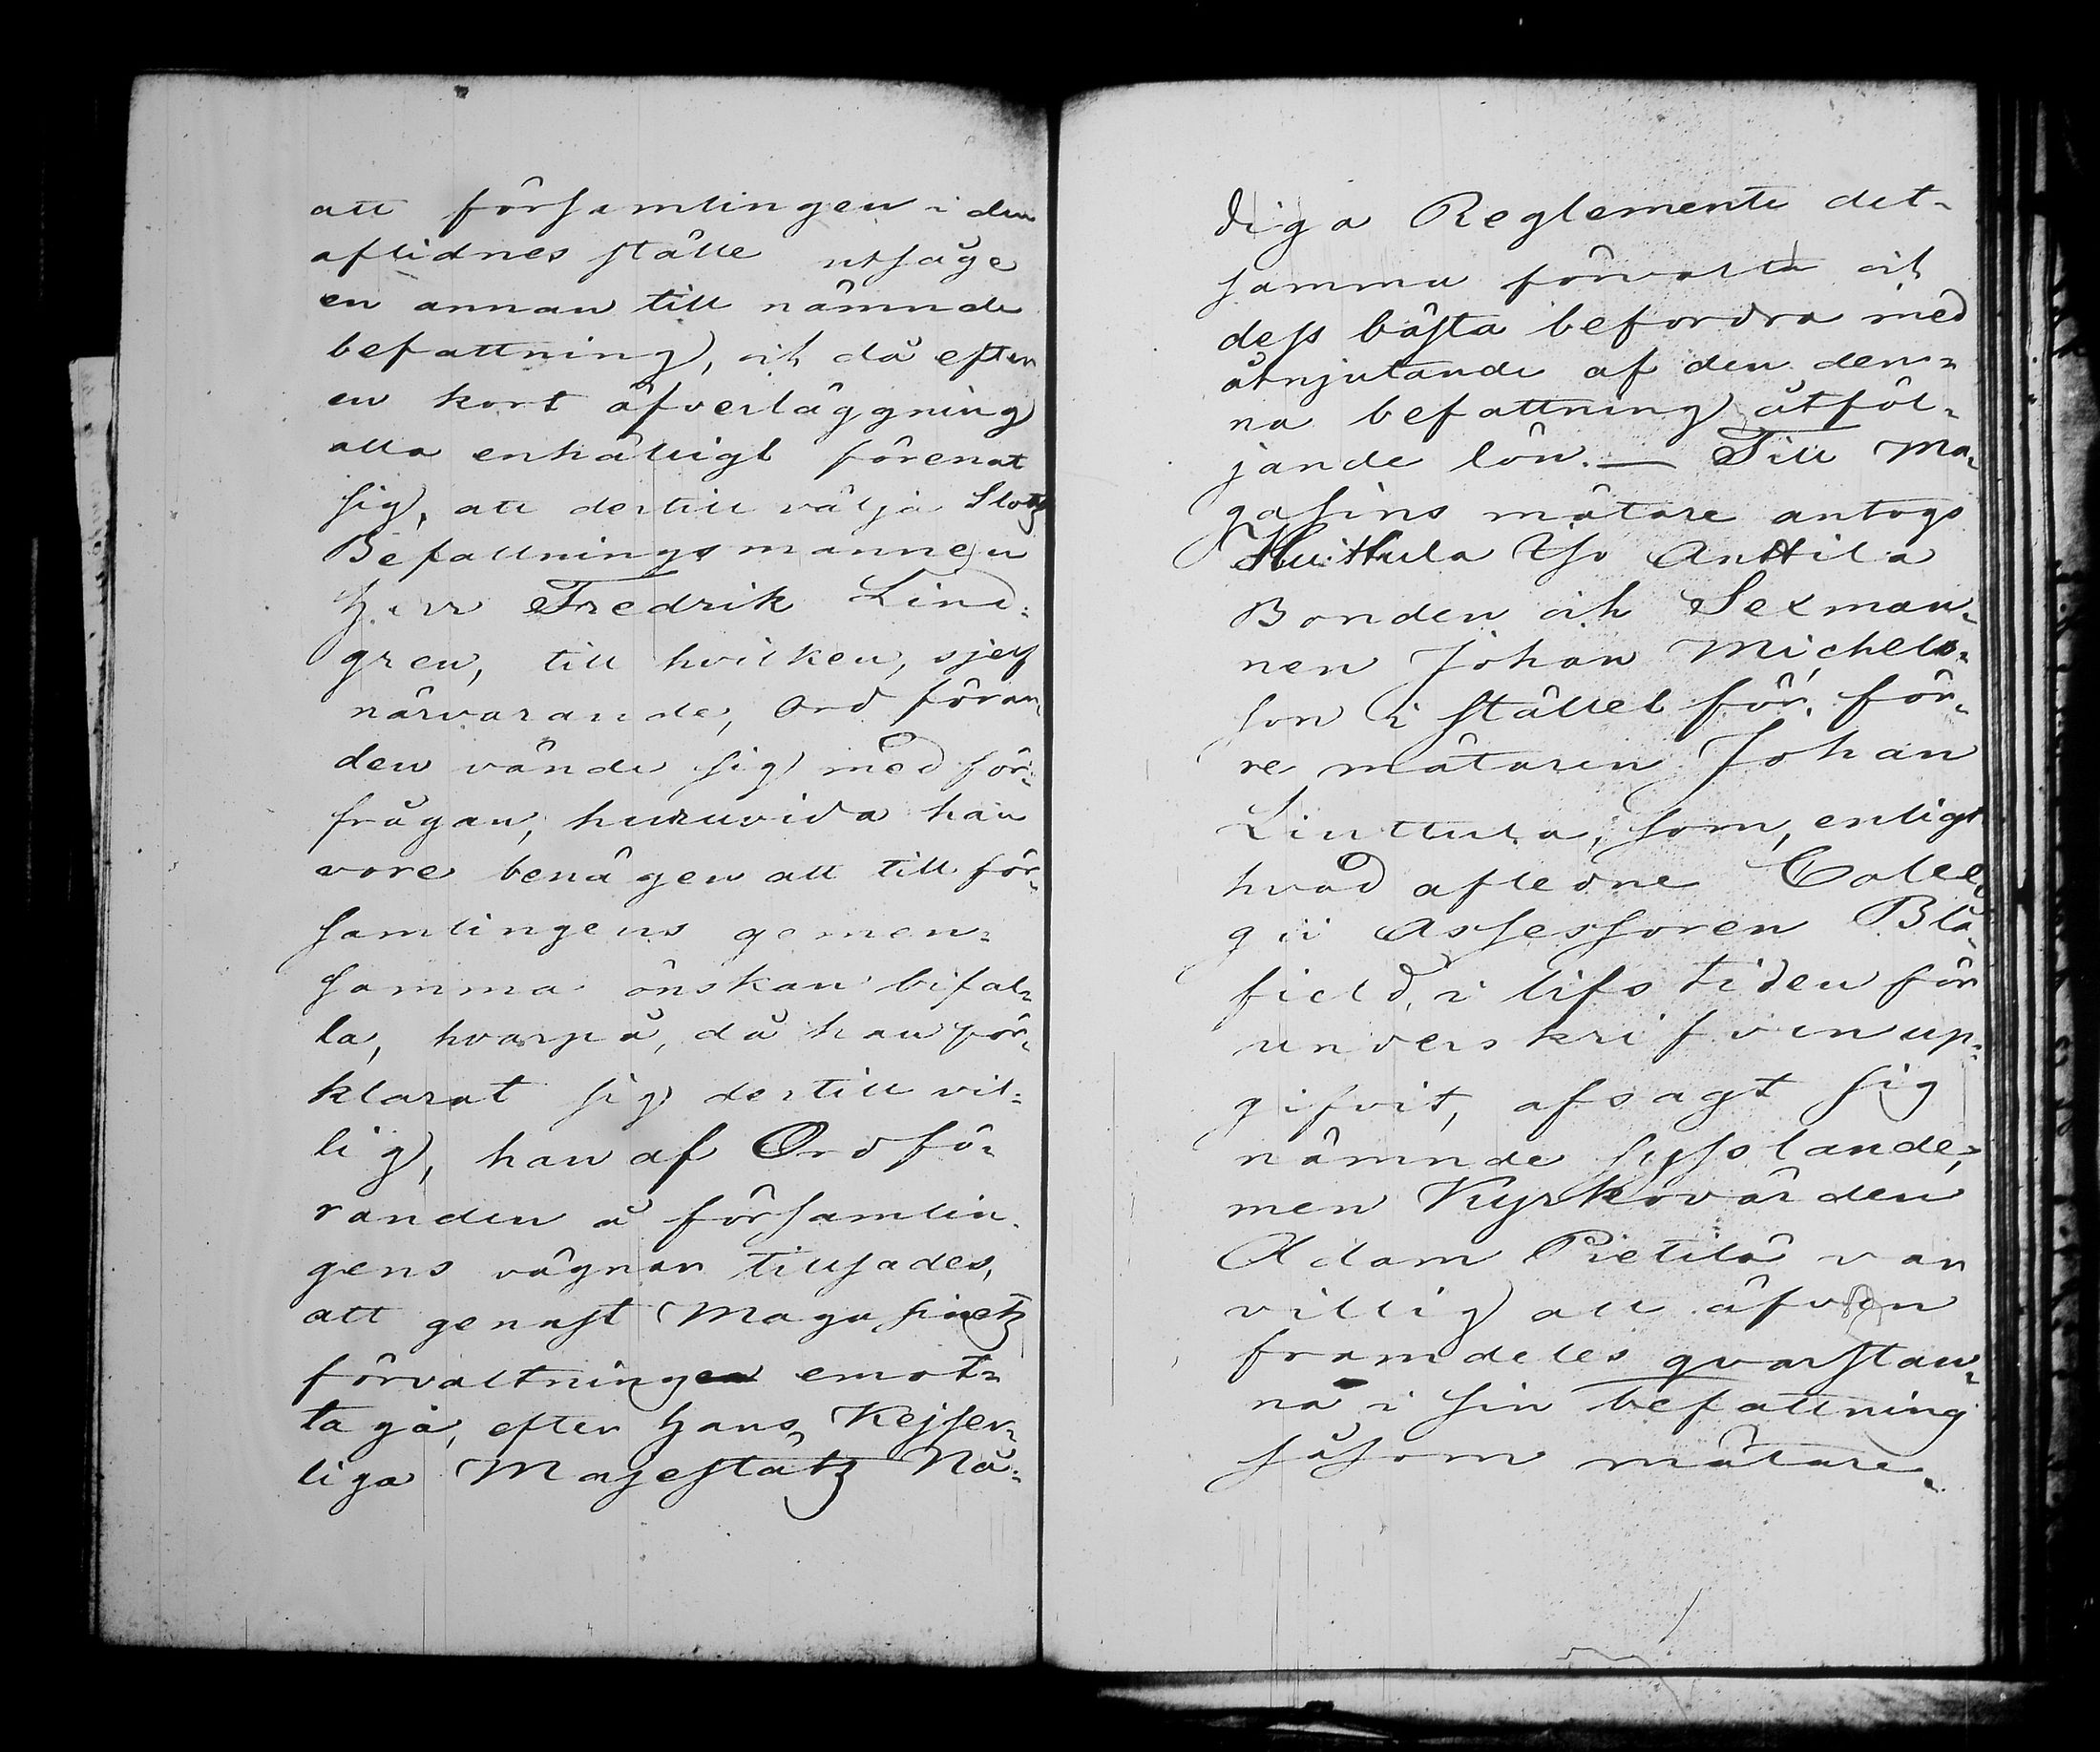 att församlingen i den
aflidnes ställe utsåge
en annan till nämnde
befattning, och då efter
en kort öfverläggning
alla enhälligt förenat
sig, att dertill välja Slotts
Befallningsmannen
Herr Fredrik Lind-
gren, till hvilken, sjelf
närvarande, Ordföran-
den vände sig med för-
frågan, huruvida han
vore benägen att till för-
samlingens gemen-
samma önskan bifal-
la, hvarpå, då han för-
klarat sig dertill vil-
lig, han af Ordfö-
randen å församlin-
gens vägnar tillsades,
att genast Magasinetz
förvaltningen emot-
taga, efter Hans Kejser-
liga Majestätz Nå-
diga Reglemente det-
samma förvalta och
dess bästa befordra med
åtnjutande af den den-
na befattning åtföl-
jande lön. — Till Ma-
gasins mätare antogs
Huittula Yso Anttila
Bonden och Sexman-
nen Johan Michels-
son i stället för för-
re mätaren Johan
Linttula, som, enligt
hvad afledne Colle-
gii Assessoren Blå-
field, i lifstiden för
underskrifven up-
gifvit, afsagt sig
nämnde sysslande,
men Kyrkovärden
Adam Pietilä var
villig att äfven
framdeles qvarstan-
na i sin befattning
såsom mätare.